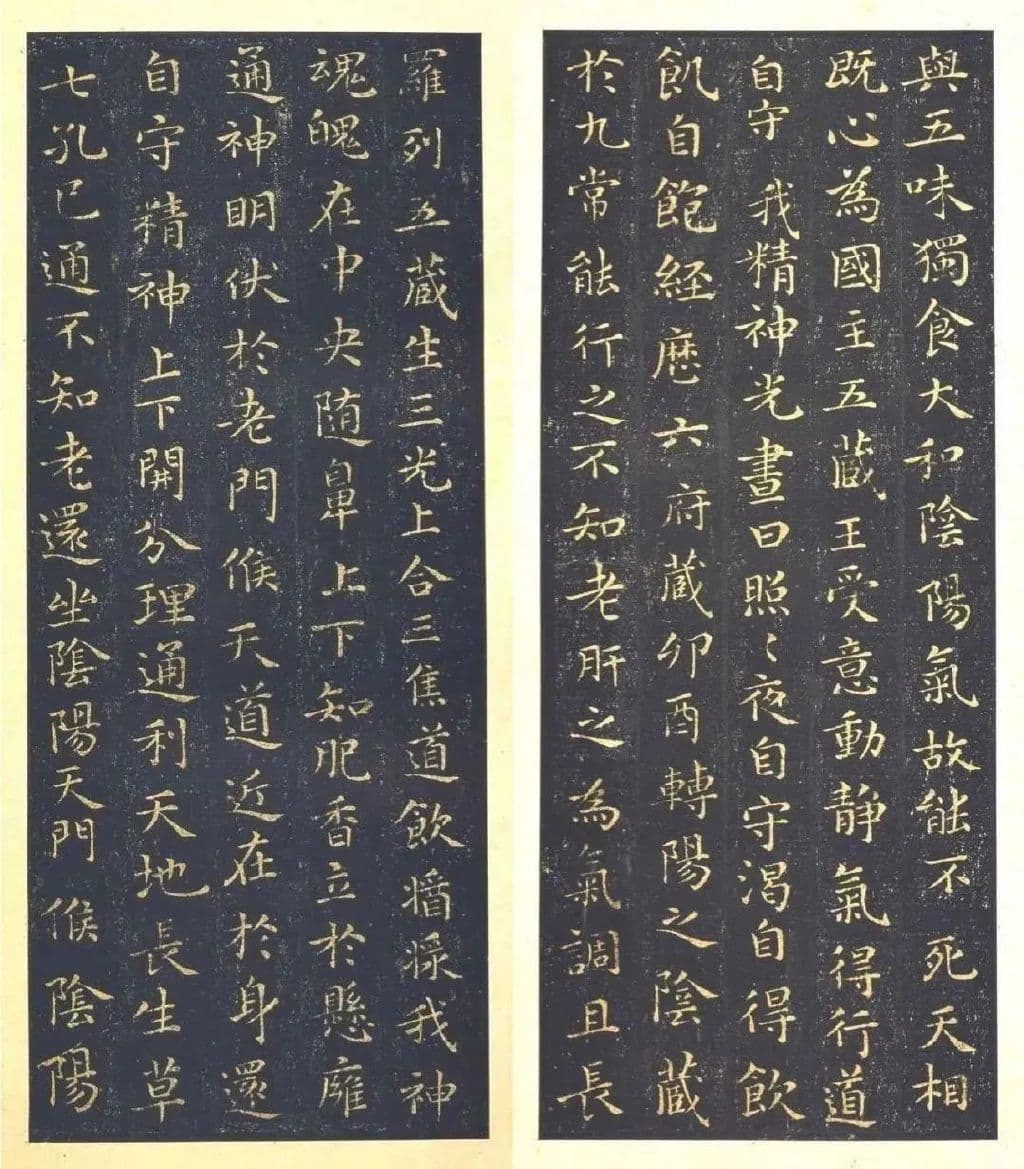 與五味獨食大和陰陽氣故能不死天相
既心為國主五藏王受意動靜氣得行道
自守我精神光晝日照〻夜自守渴自得飲
飢自飽經歷六府藏卯酉轉陽之陰藏
於九常能行之不知老肝之為氣調且長
羅列五藏生三光上合三焦道飲醬漿我神
魂魄在中央随鼻上下知肥香立於懸廱
通神明伏於老門候天道近在於身還
自守精神上下開分理通利天地長生草
七孔已通不知老還坐陰陽天門候陰陽